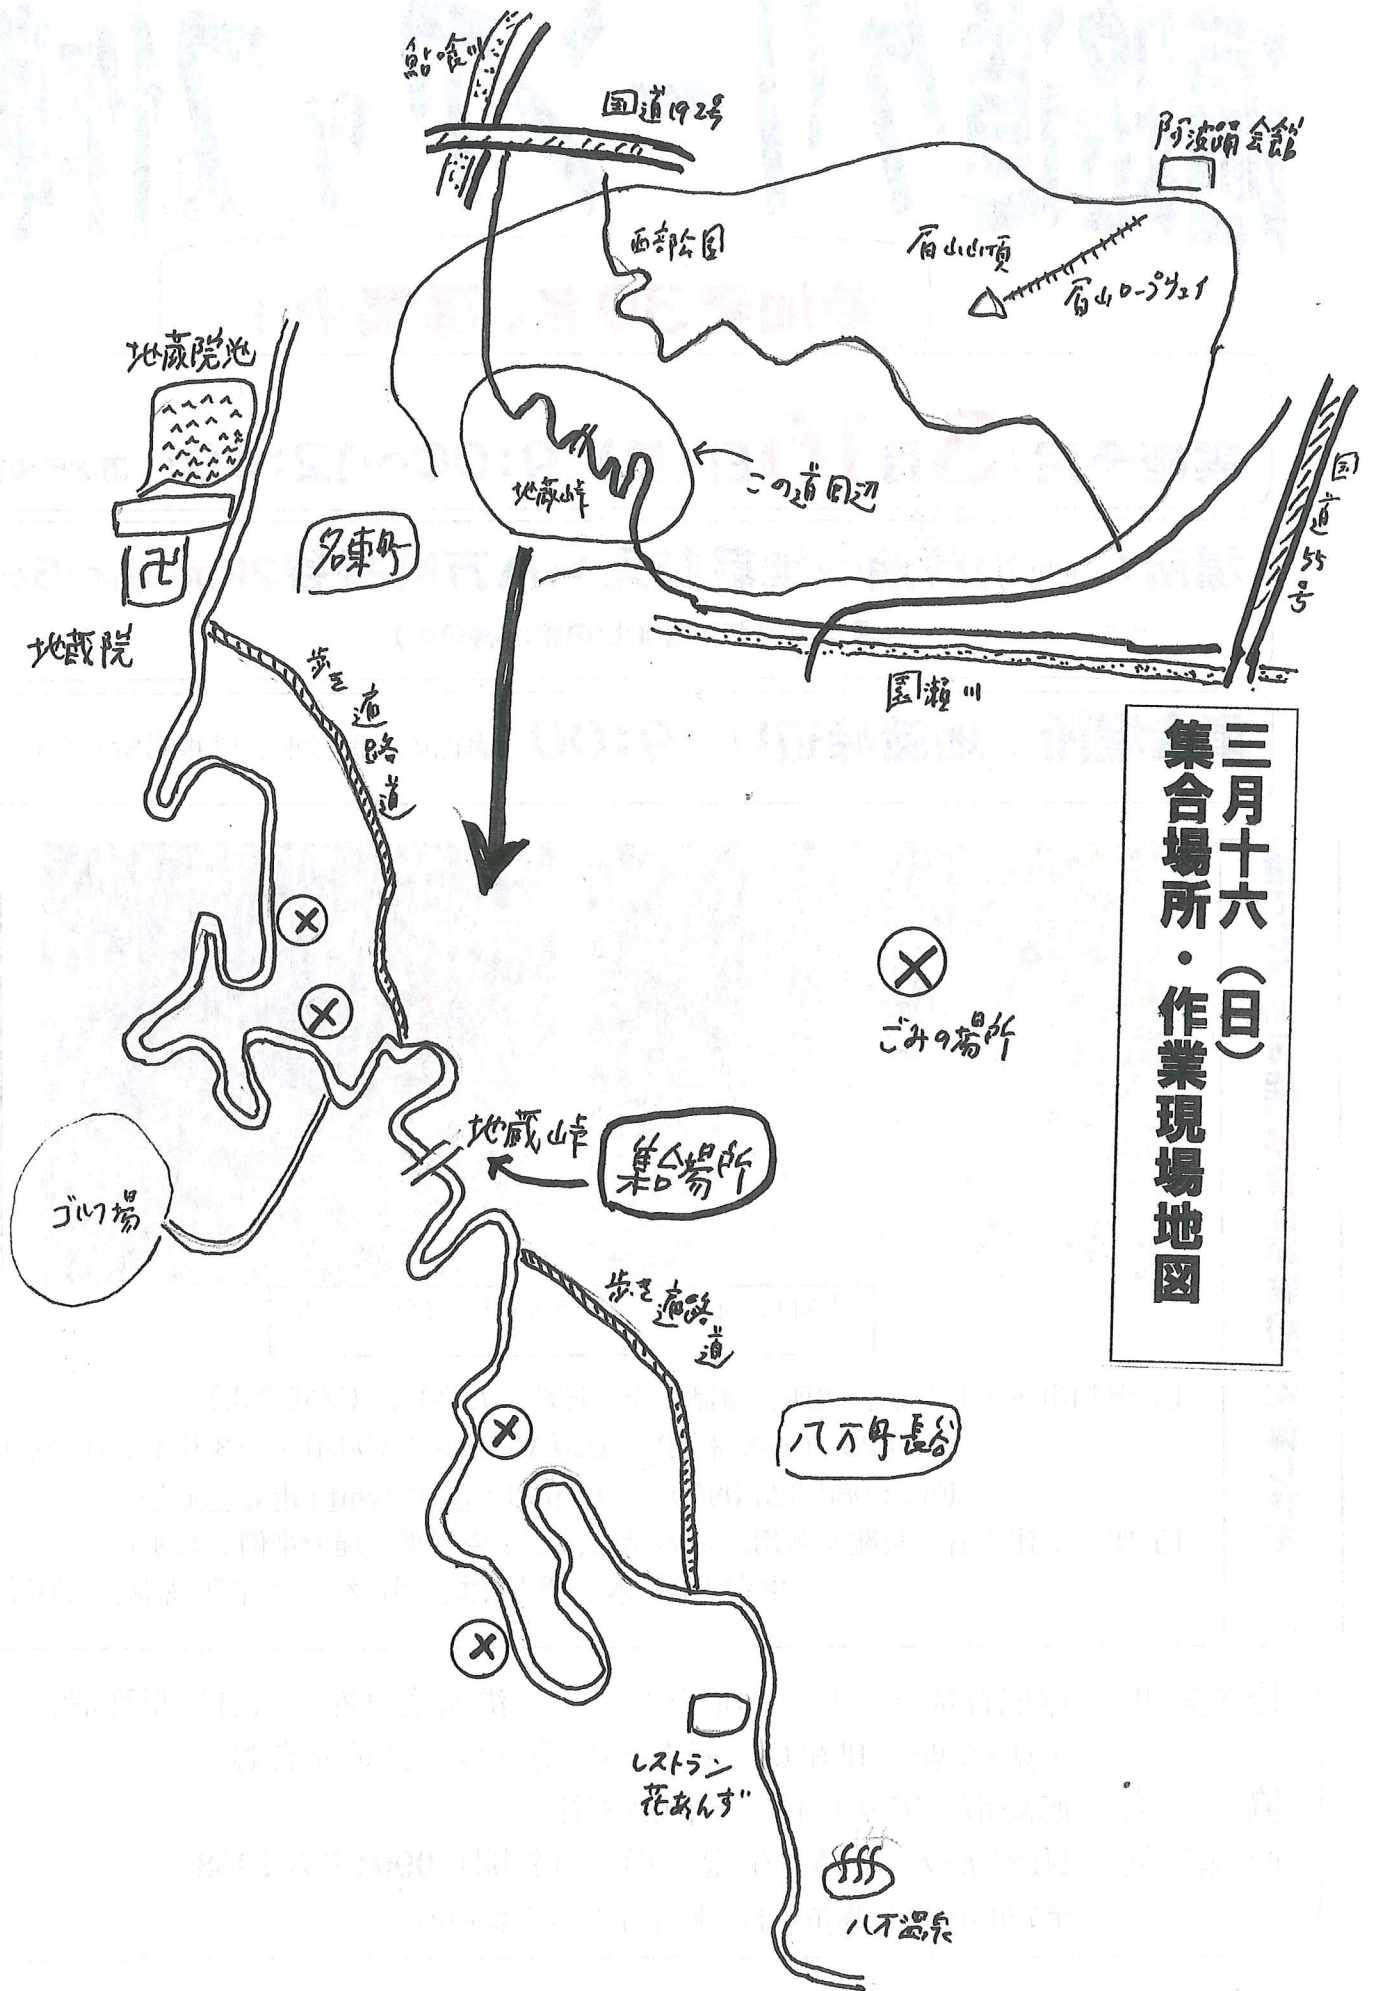 鮎喰川
国道192号
阿波踊会館
西部公園
眉山山頂
眉山ロープウェイ
地蔵院池
この道周辺
地蔵峠
国道55号
名東町
地蔵院
歩き遍路道
園瀬川
三月十六(日)
集合場所・作業現場地図
ごみの場所
地蔵峠
集合場所
ゴルフ場
歩き遍路道
八万町長谷
レストラン
花あんず
八万温泉